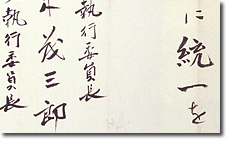 に統一を
執行委員長
木茂三郎
執行委員長